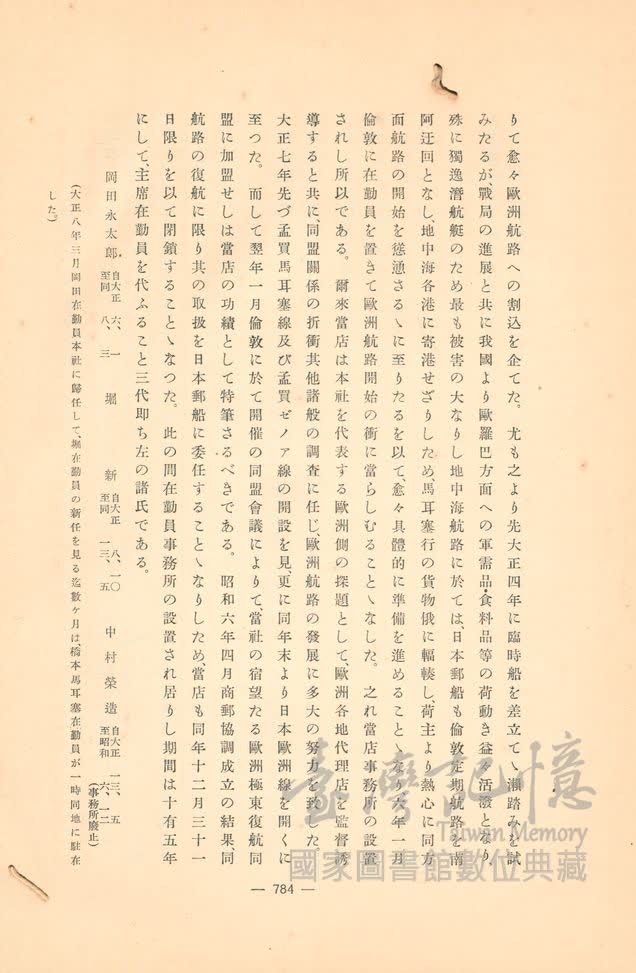 りて愈々歐洲航路への割込を企てた。尤も之より先大正四年に臨時船を差立てゝ瀨踏みを試
みたるが、戰局の進展と共に我國より歐羅巴方面への軍需品・食料品等の荷動き益々活潑となり、
殊に獨逸潛航艇のため最も被害の大なりし地中海航路に於ては、日本郵船も倫敦定期航路を南
阿迂回となし、地中海各港に寄港せざりしため、馬耳塞行の貨物俄に輻輳し、荷主より熱心に同方
面航路の開始を慫慂さるゝに至りたるを以て、愈々具體的に準備を進めることゝなり、六年一月
倫敦に在勤員を置きて歐洲航路開始の衝に當らしむることゝなした。之れ當店事務所の設置
されし所以である。爾來當店は本社を代表する歐洲側の探題として、歐洲各地代理店を監督誘
導すると共に、同盟關係の折衝其他諸般の調査に任じ、歐洲航路の發展に多大の努力を致した。
大正七年先づ孟買馬耳塞線及び孟買ゼノア線の開設を見、更に同年末より日本歐洲線を開くに
至つた。而して翌年一月倫敦に於て開催の同盟會議によりて、當社の宿望たる歐洲極東復航同
盟に加盟せしは當店の功績として特筆さるべきである。昭和六年四月商郵協調成立の結果、同
航路の復航に限り其の取扱を日本郵船に委任することゝなりしため、當店も同年十二月三十一
日限りを以て閉鎖することゝなつた。此の間在勤員事務所の設置され居りし期間は十有五年
にして、主席在勤員を代ふること三代即ち左の諸氏である。
岡田永太郎 自大正 六、一 至同 八、三 堀新 自大正 八、一〇 至同 一三、五 中村榮造 自大正 一三、五 至昭和 六、一二 (事務所廢止)
(大正八年三月岡田在勤員本社に歸任して、堀在勤員の新任を見る迄數ヶ月は、橋本馬耳塞在勤員が一時同地に駐在
した。)
— 784 —
臺灣記憶
Taiwan Memory
國家圖書館數位典藏